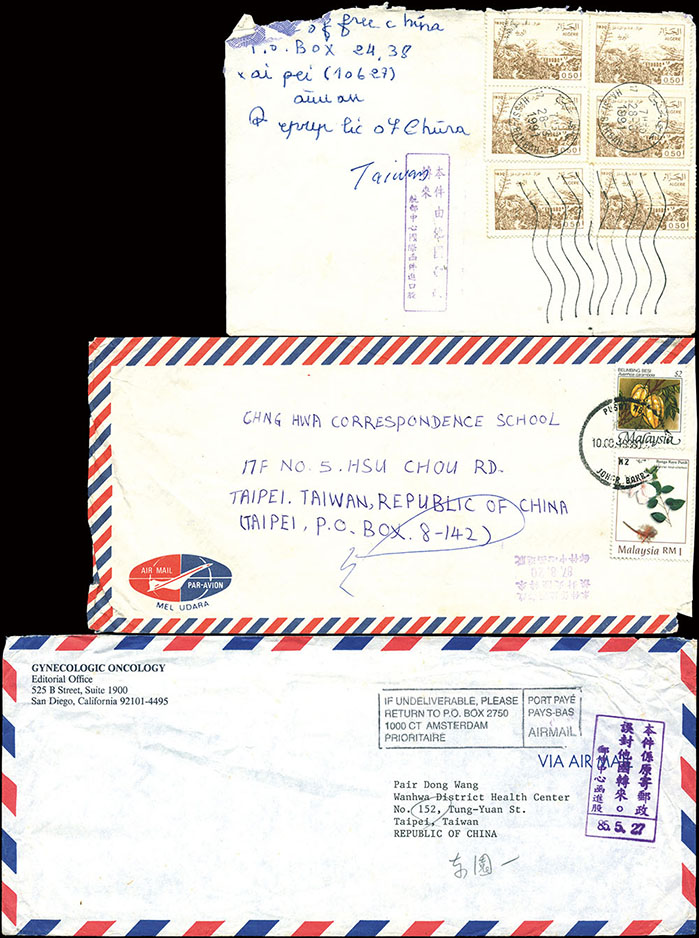 of free china
P.o. BOX 24, 38
ai pei (10627)
lic of China
Taiwan
本件由
來
航郵中心國際函件進口股
الجزائر
ALGERIE
0.50
ALGERIE
0.50
ALGERIE
0.50
ALGERIE
0.50
ALGERIE
0.50
ALGERIE
0.50
28-8
1991
28-8
1991
CHNG HWA CORRESPONDENCE SCHOOL
17F NO. 5. HSU CHOU RD.
TAIPEI. TAIWAN, REPUBLIC OF CHINA
(TAIPEI, P.O. BOX. 8-142)
BELIMBING BESI
Averrhoa carambola
Malaysia
JOHOR BAHRU
Malaysia RM 1
87. 8. 20
AIR MAIL
PAR-AVION
MEL UDARA
GYNECOLOGIC ONCOLOGY
Editorial Office
525 B Street, Suite 1900
San Diego, California 92101-4495
IF UNDELIVERABLE, PLEASE
RETURN TO P.O. BOX 2750
1000 CT AMSTERDAM
PRIORITAIRE
PORT PAYÉ
PAYS-BAS
AIRMAIL
VIA AIR MAIL
Pair Dong Wang
Wanhwa District Health Center
No. 152, Tung-Yuan St.
Taipei, Taiwan
REPUBLIC OF CHINA
东園一
本件係原寄郵政
誤封他國轉來。
郵中心函進股
85. 5. 27